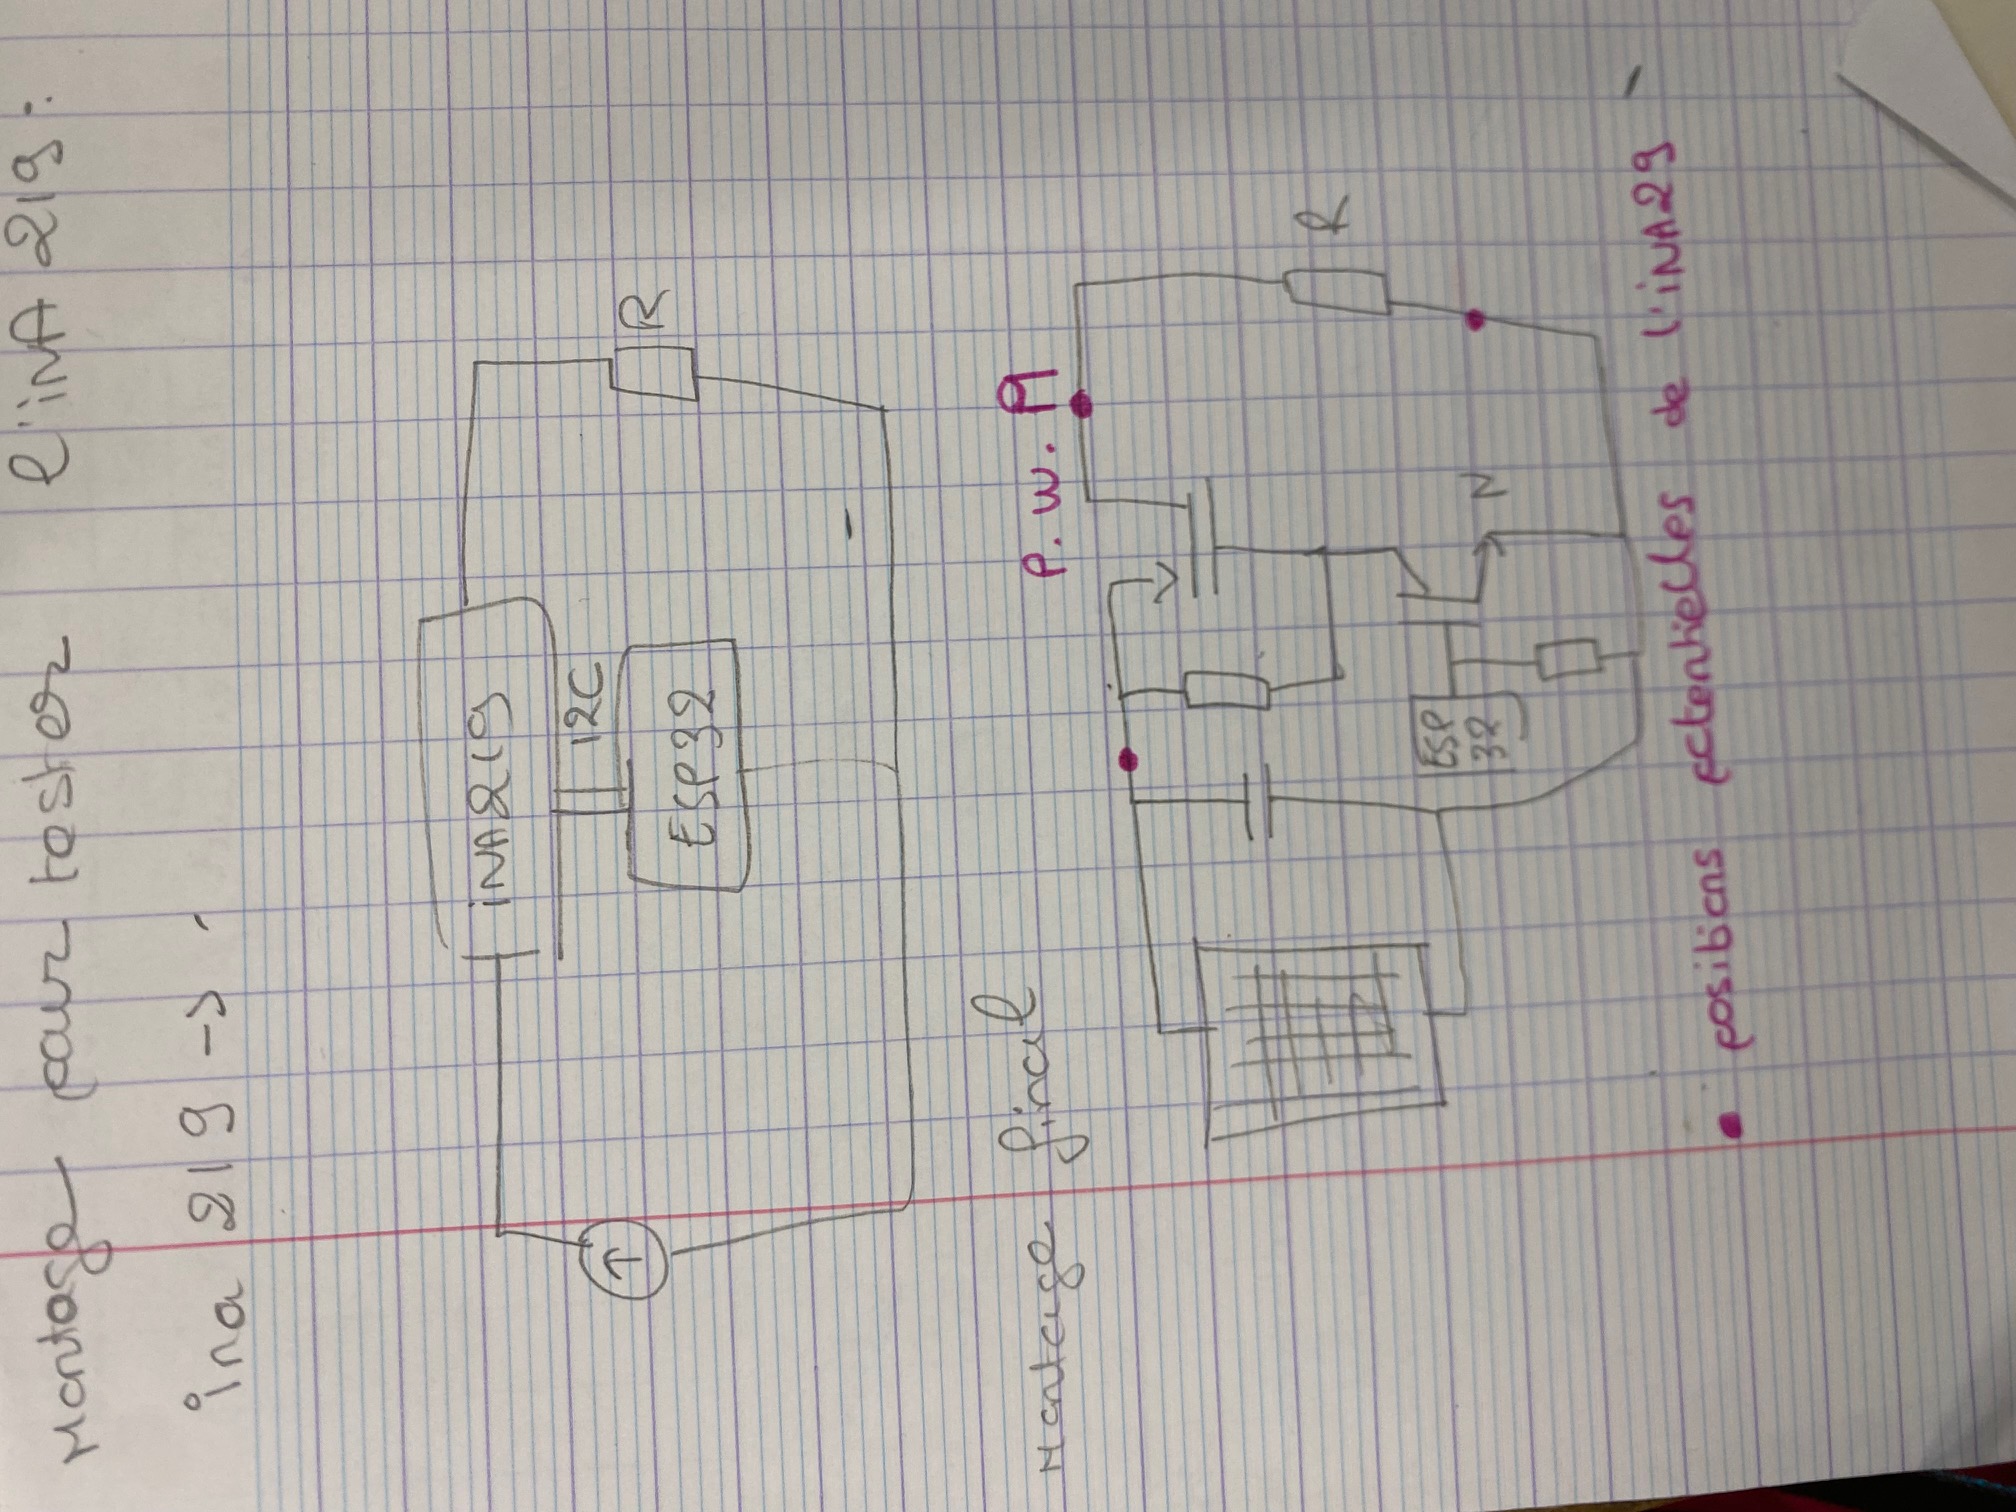 Montage pour tester l'iNA 219 :
ina 219 ->
iNA219
I2C
ESP32
R
-
Montage final
P.W.M
R
ESP
32
N
• positions potentielles de l'iNA29